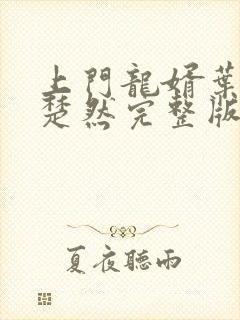 上門龍婿葉
楚然完整版
夏夜聽雨